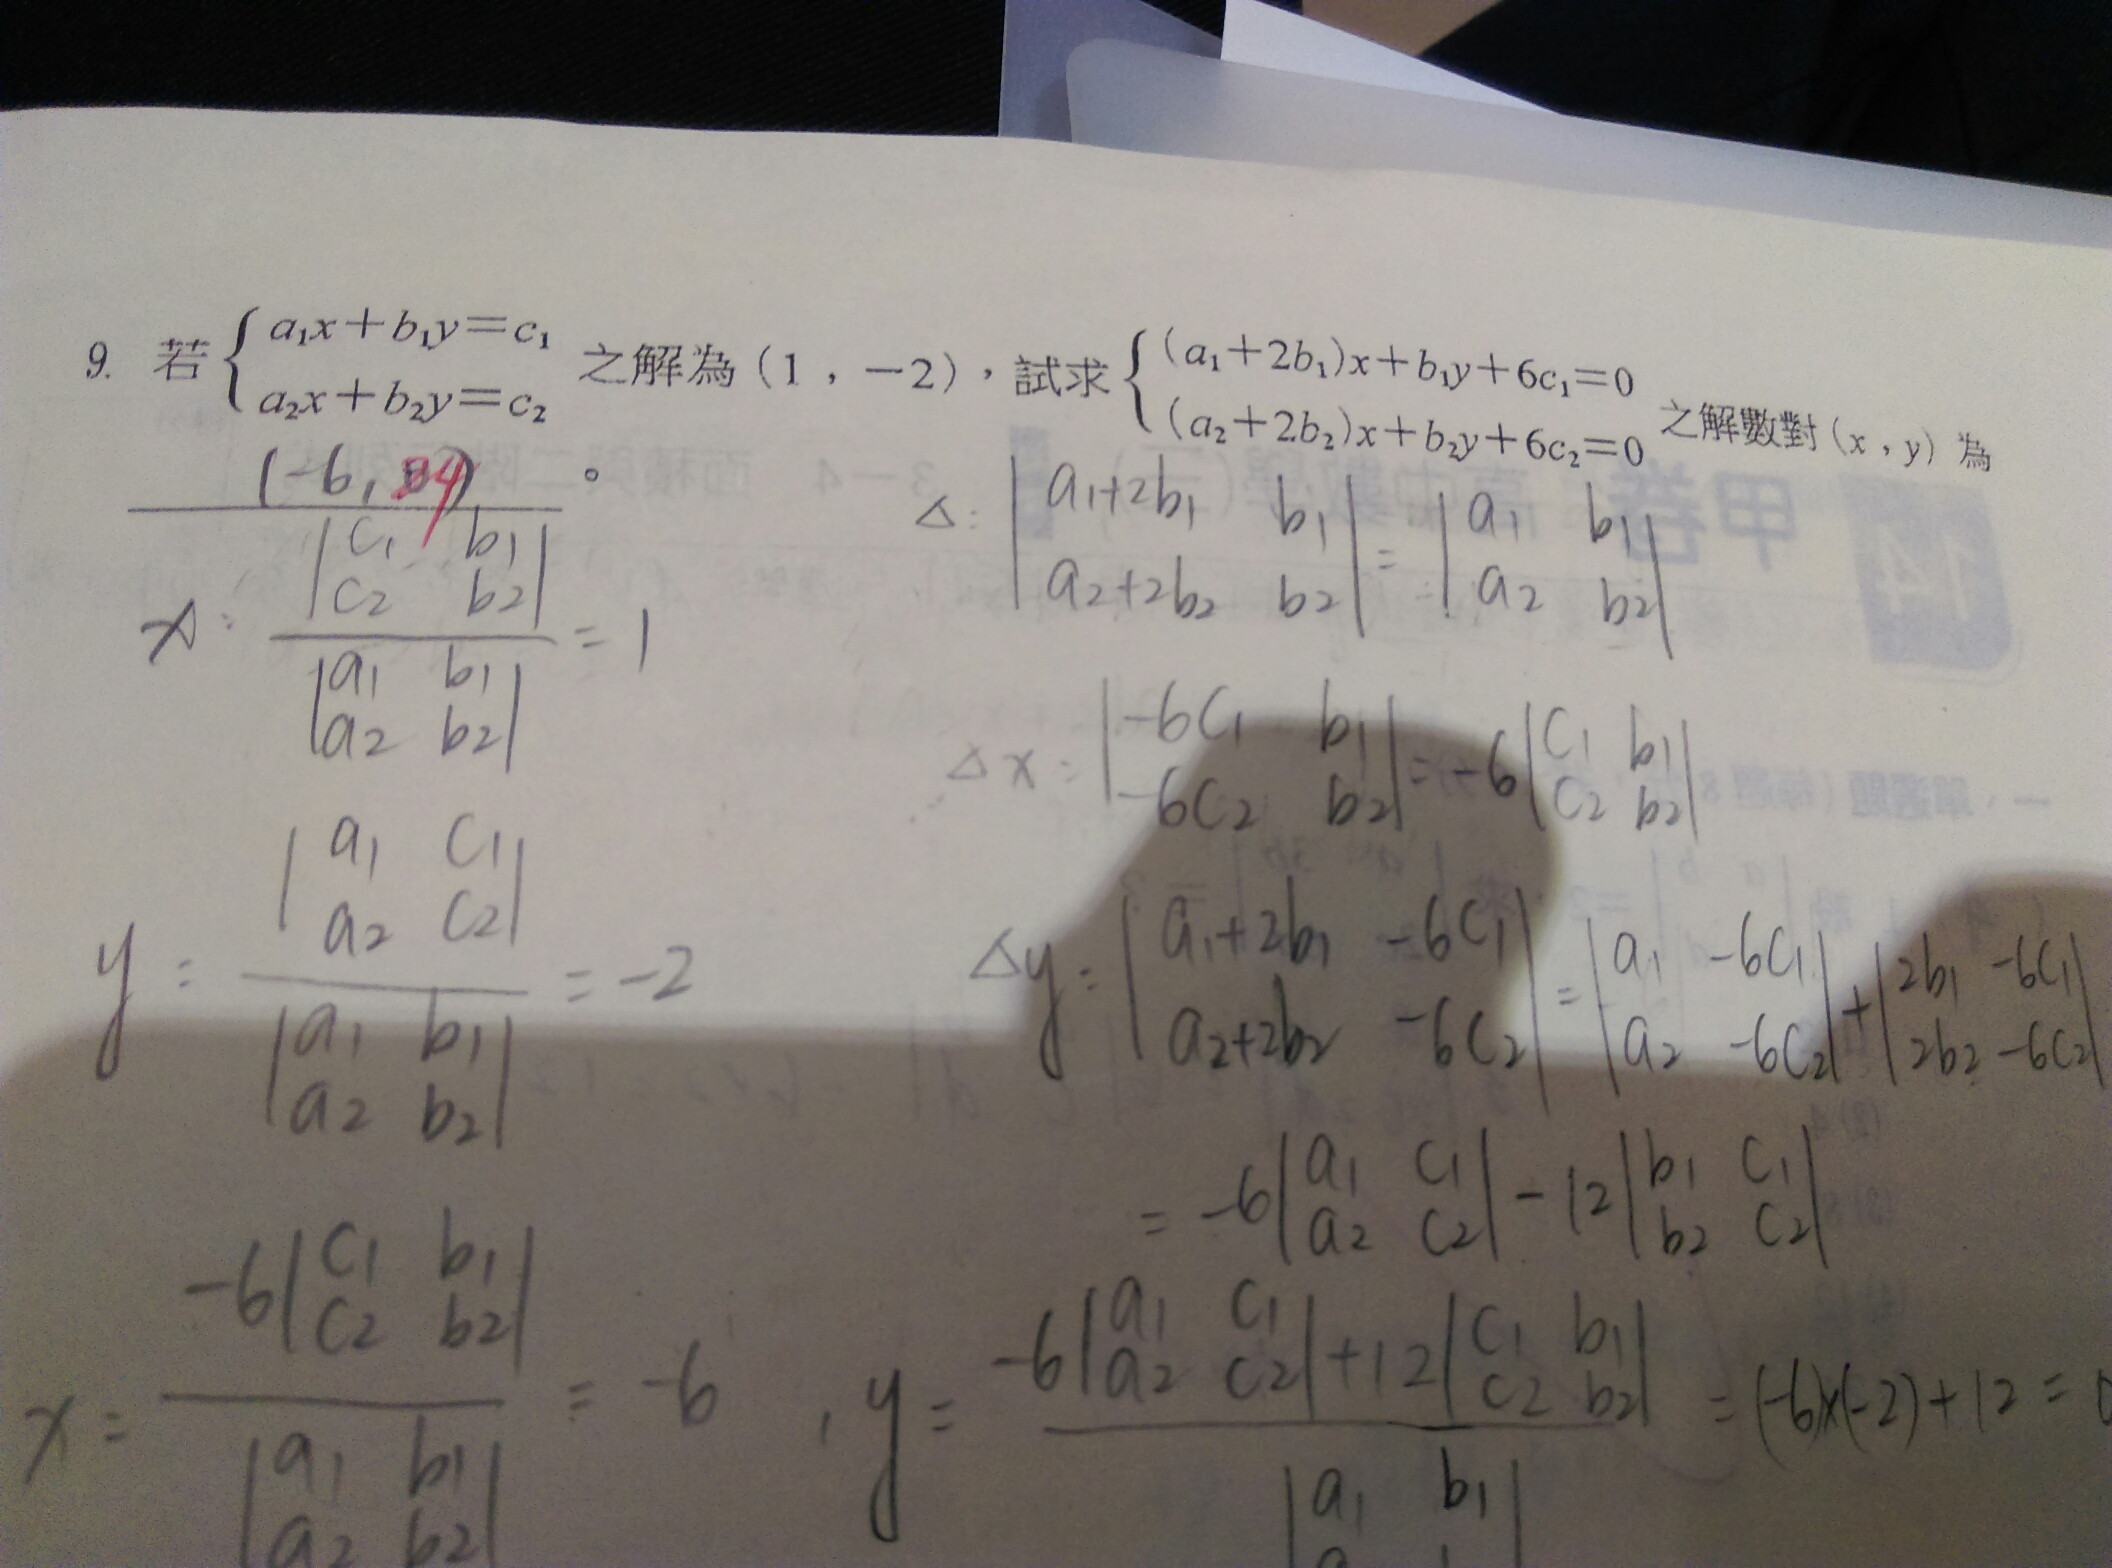 9. 若 { a₁x+b₁y=c₁
a₂x+b₂y=c₂ 之解為 (1，-2)，試求 { (a₁+2b₁)x+b₁y+6c₁=0
(a₂+2b₂)x+b₂y+6c₂=0 之解數對 (x，y) 為
(-6, 24) 。
x: |c₁ b₁|
|c₂ b₂|
/ |a₁ b₁|
|a₂ b₂| = 1
y: |a₁ c₁|
|a₂ c₂|
/ |a₁ b₁|
|a₂ b₂| = -2
△: |a₁+2b₁ b₁| = |a₁ b₁|
|a₂+2b₂ b₂| |a₂ b₂|
△x: |-6c₁ b₁| = -6|c₁ b₁|
|-6c₂ b₂| |c₂ b₂|
△y: |a₁+2b₁ -6c₁| = |a₁ -6c₁| + |2b₁ -6c₁|
|a₂+2b₂ -6c₂| |a₂ -6c₂| |2b₂ -6c₂|
= -6|a₁ c₁| - 12|b₁ c₁|
|a₂ c₂| |b₂ c₂|
x = -6|c₁ b₁|
|c₂ b₂|
/ |a₁ b₁|
|a₂ b₂| = -6
, y = -6|a₁ c₁| + 12|c₁ b₁|
|a₂ c₂| |c₂ b₂|
/ |a₁ b₁| = (-6)×(-2)+12=0